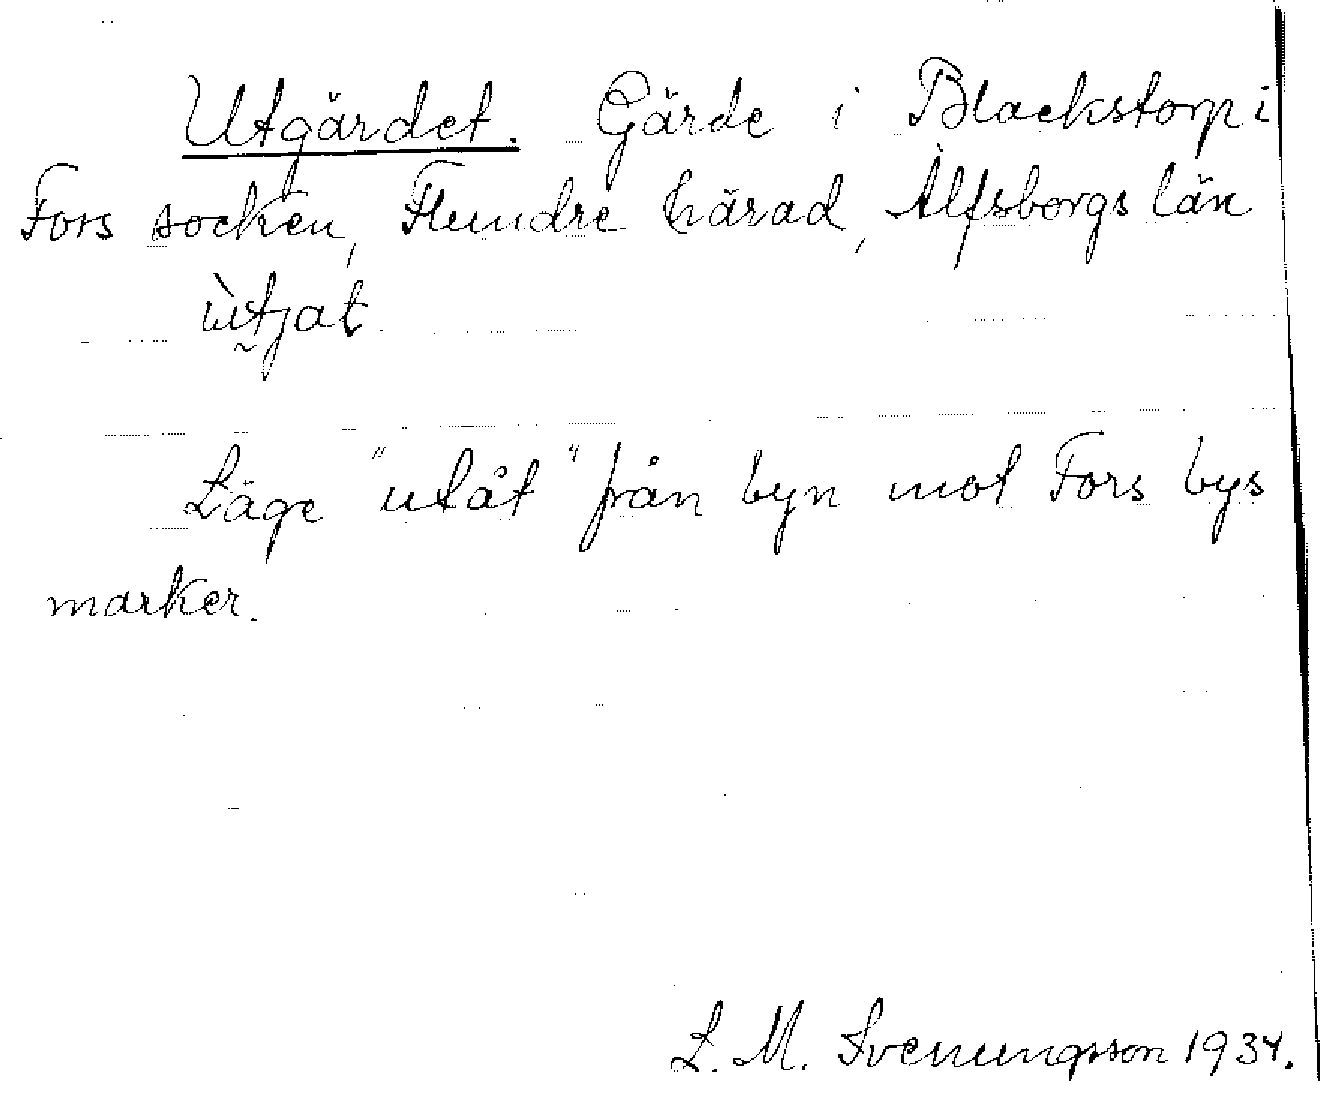 Utgärdet. Gärde i Blackstorp i
Fors socken, Flundre härad, Älfsborgs län
ùtjat
Läge "utåt" från byn mot Fors bys
marker.
L. M. Svenungsson 1934.